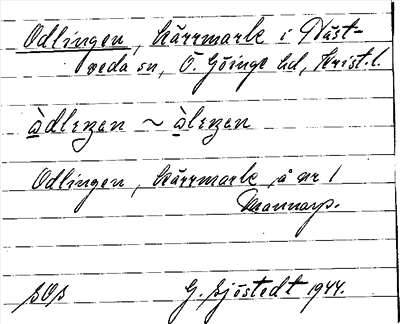 Odlingen, kärrmark i Näst-
veda sn, Ö. Göinge hd, Krist. l.
àdlengen ~ àlengen
Odlingen, kärrmark, å nr 1
Mannarp.
SOS G. Sjöstedt 1944.